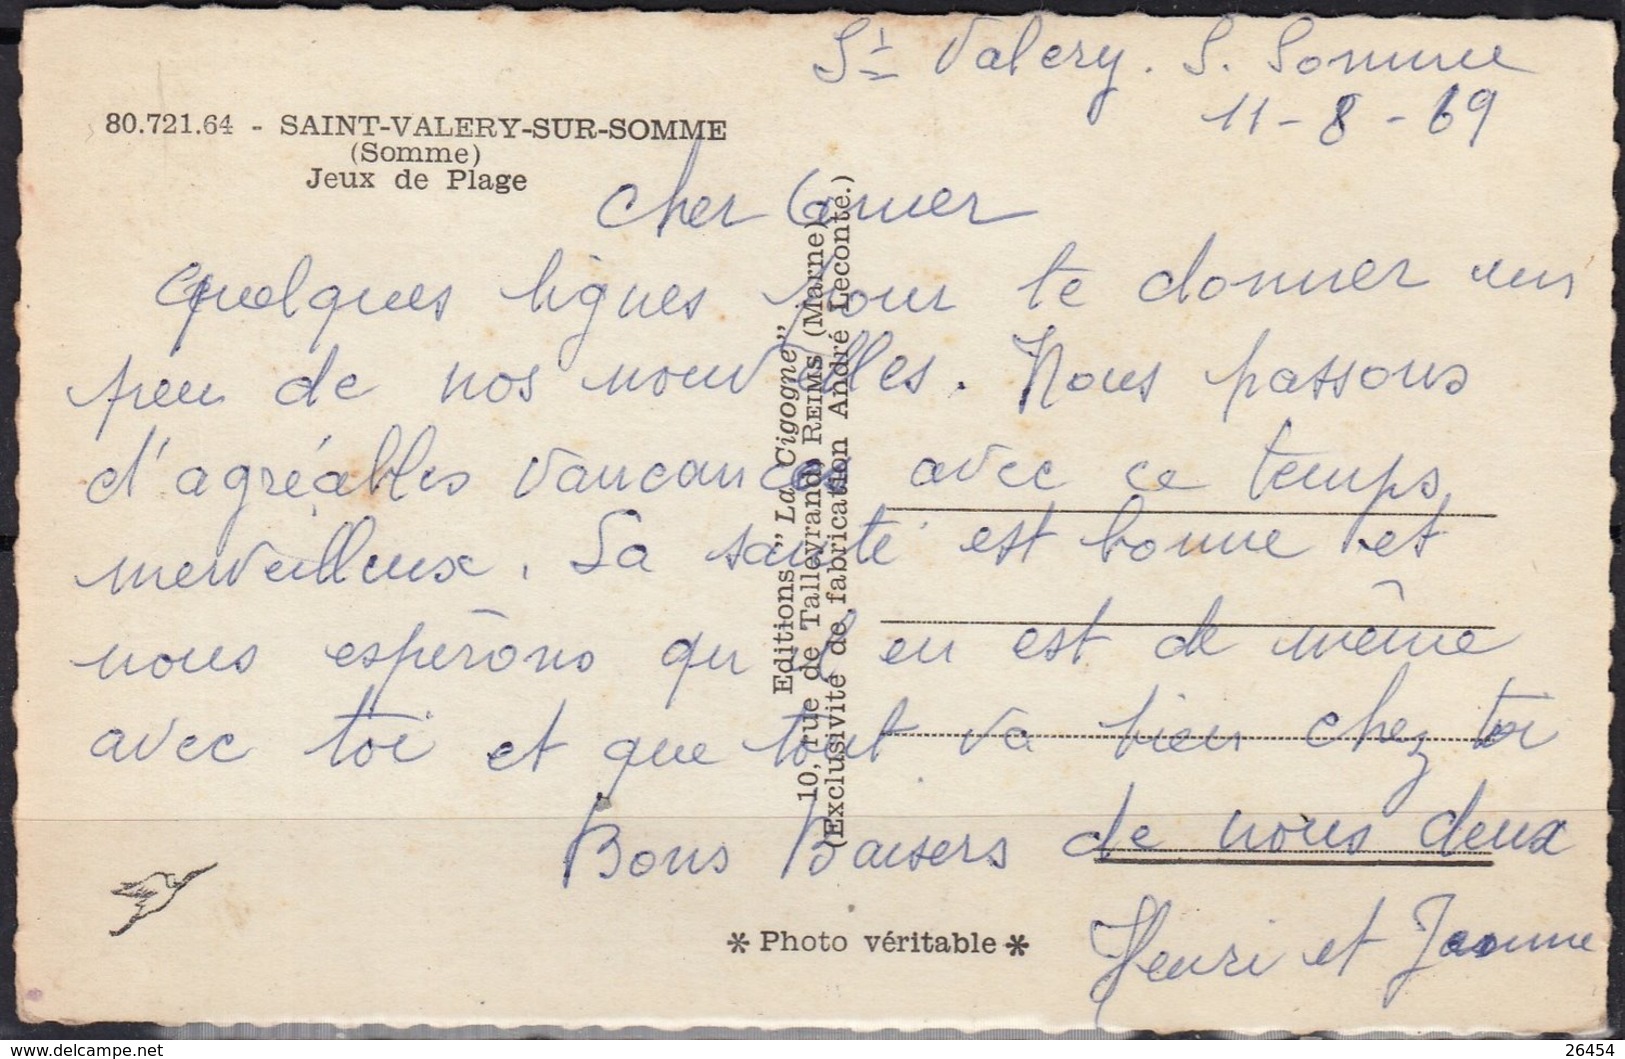 St Valery. S. Somme
11-8-69
80.721.64 - SAINT-VALERY-SUR-SOMME
(Somme)
Jeux de Plage
Cher
Quelques lignes pour te donner un
peu de nos nouvelles. Nous passons
d'agréables vancances avec ce temps
merveilleux. La santé est bonne et
nous espérons qu'il en est de même
avec toi et que tout va bien chez toi
Bons Baisers de nous deux
Henri et Jeanne
Editions „La Cigogne„
10, rue de Talleyrand, REIMS (Marne)
(Exclusivité de fabrication André Leconte.)
* Photo véritable *
delcampe.net
26454